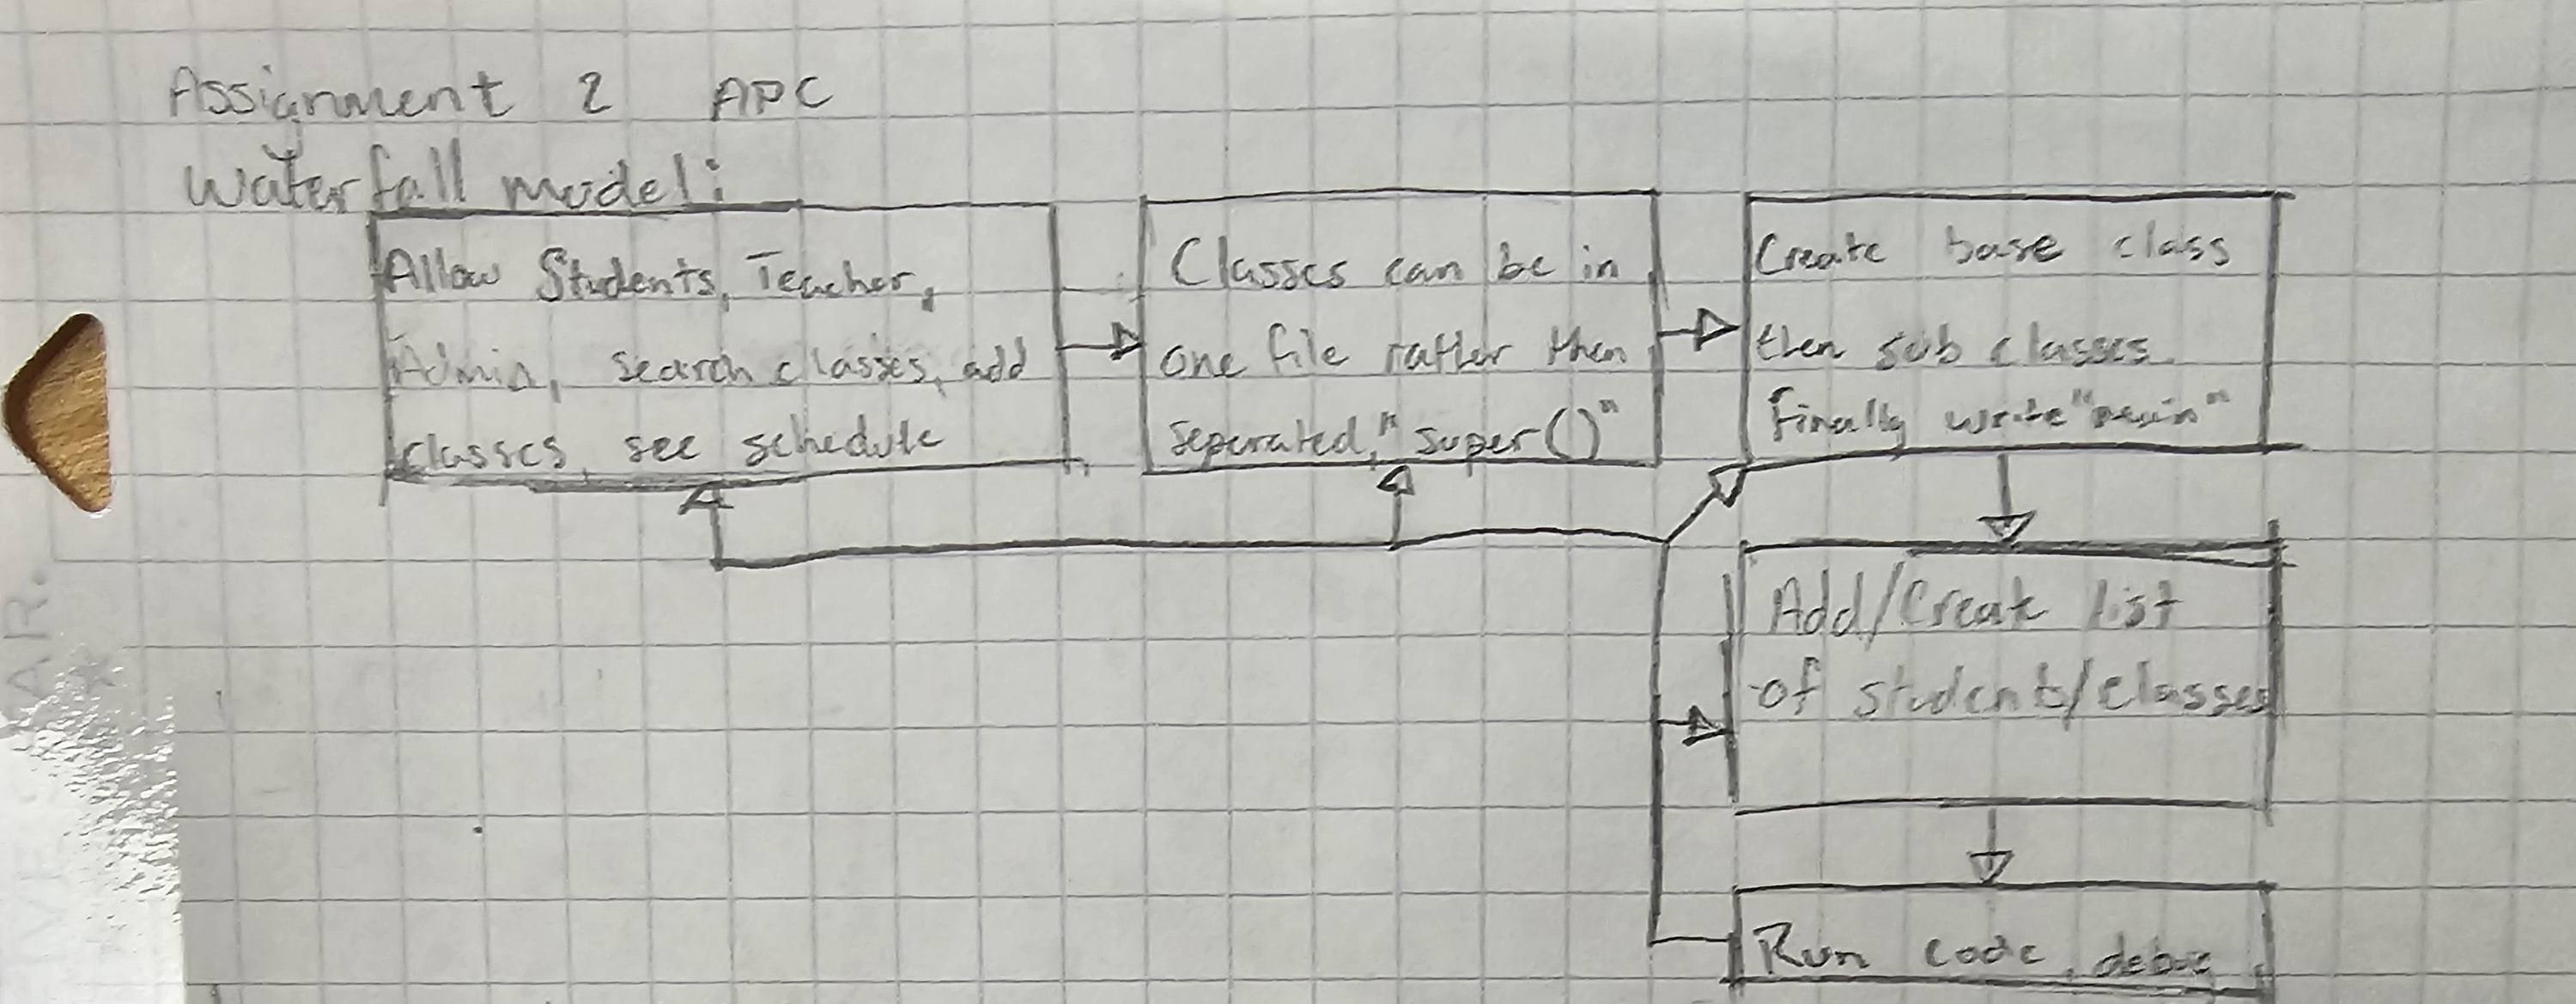 Assignment 2 APC
Waterfall model:
Allow Students, Teacher,
Admin, search classes, add
classes, see schedule
Classes can be in
one file rather then
seperated, "super()"
Create base class
then sub classes.
Finally write "main"
Add/Create list
of students/classes
Run code, debug